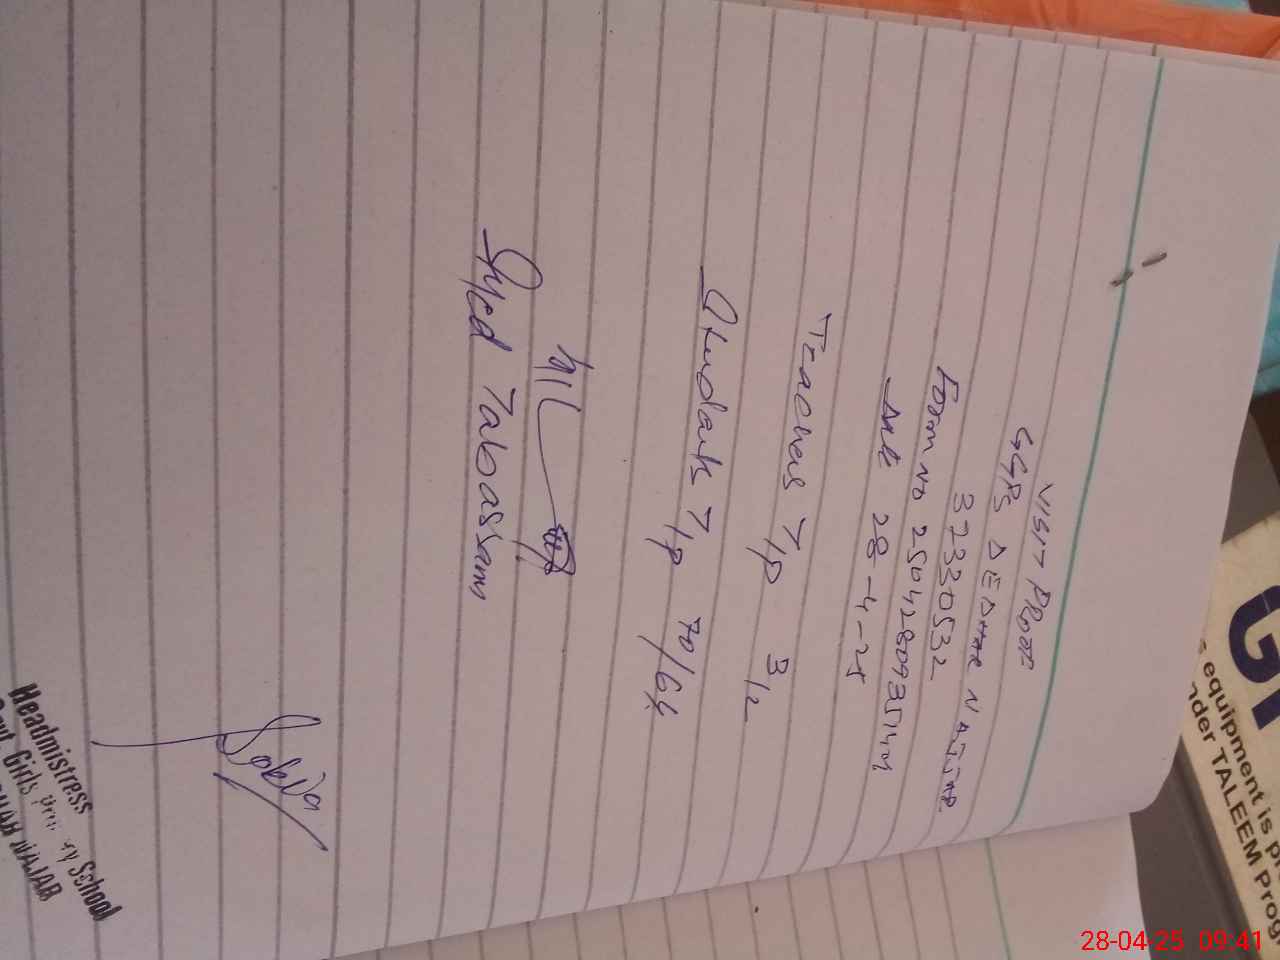 VISIT PROOF
GGPS DEDHAR NAJJAR
37330532
Form no 250428093514m
Date 28-4-25
Teachers T/P 3/2
Students T/P 70/64
Syed Tabassam
Sobia
Headmistress
Govt. Girls Primary School
NAJAR
G
equipment is pr
nder TALEEM Prog
28-04-25 09:41